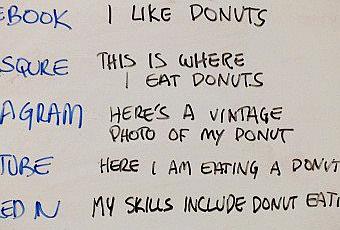 EBOOK I LIKE DONUTS
SQURE THIS IS WHERE
I EAT DONUTS
AGRAM HERE'S A VINTAGE
PHOTO OF MY DONUT
TUBE HERE I AM EATING A DONUT
ED N MY SKILLS INCLUDE DONUT EATI